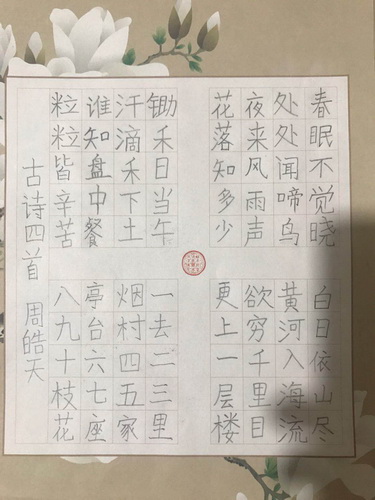 春眠不觉晓
处处闻啼鸟
夜来风雨声
花落知多少
白日依山尽
黄河入海流
欲穷千里目
更上一层楼
锄禾日当午
汗滴禾下土
谁知盘中餐
粒粒皆辛苦
一去二三里
烟村四五家
亭台六七座
八九十枝花
古诗四首 周皓天